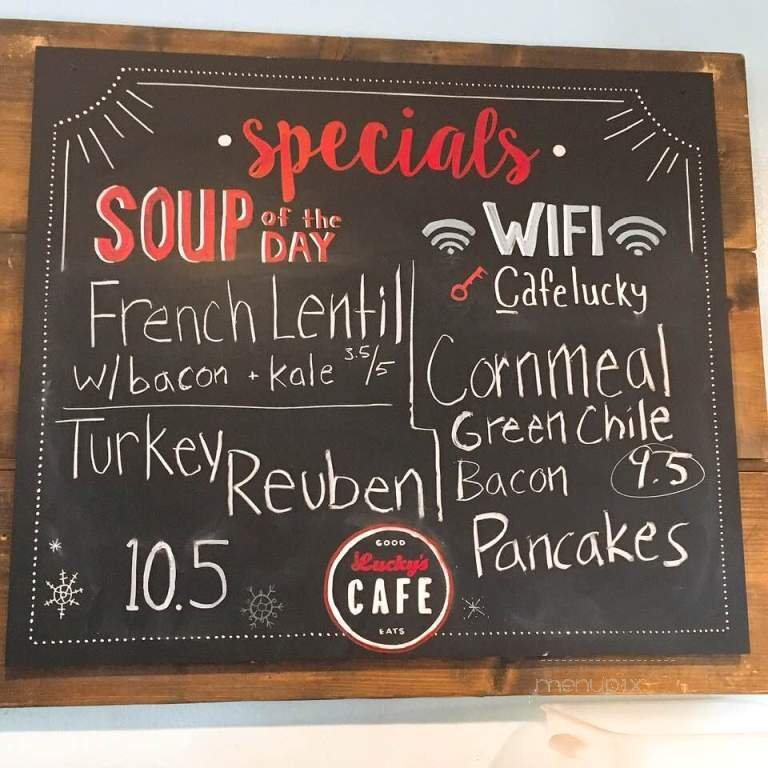 • specials •
SOUP of the DAY
French Lentil
w/bacon + kale 3.5/5
Turkey Reuben
10.5
WIFI
Cafelucky
Cornmeal
Green Chile
Bacon 9.5
Pancakes
GOOD
Lucky's
CAFE
EATS
menupix